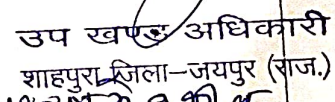 उप खण्ड अधिकारी
शाहपुरा जिला-जयपुर (राज.)